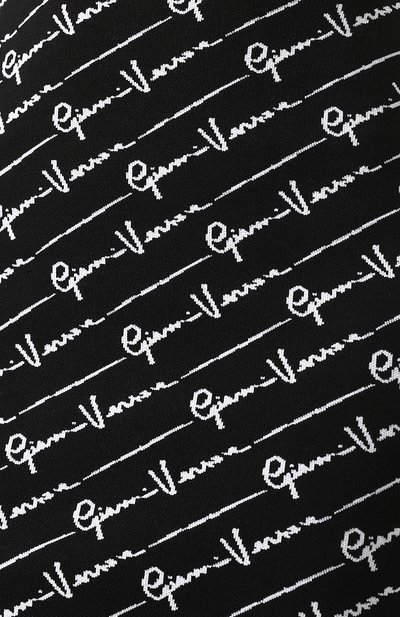 Gianni Versace
Gianni Versace Gianni Versace
Gianni Versace Gianni Versace Gianni
Gianni Versace Gianni Versace
Versace Gianni Versace Gianni Versace
Gianni Versace Gianni Versace
Versace Gianni Versace Gianni Versace
Versace Gianni Versace Gianni